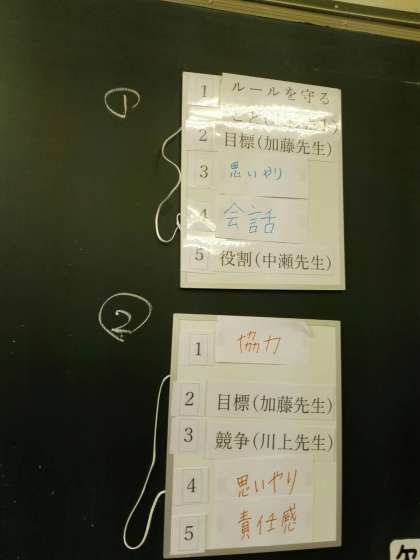 ①
1 ルールを守る
2 目標(加藤先生)
3 思いやり
4 会話
5 役割(中瀬先生)
②
1 協力
2 目標(加藤先生)
3 競争(川上先生)
4 思いやり
5 責任感